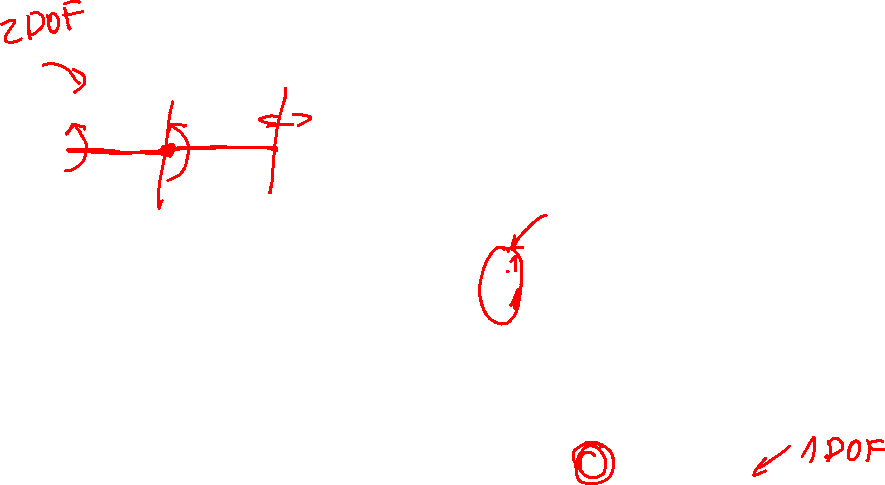 2DOF
1DOF